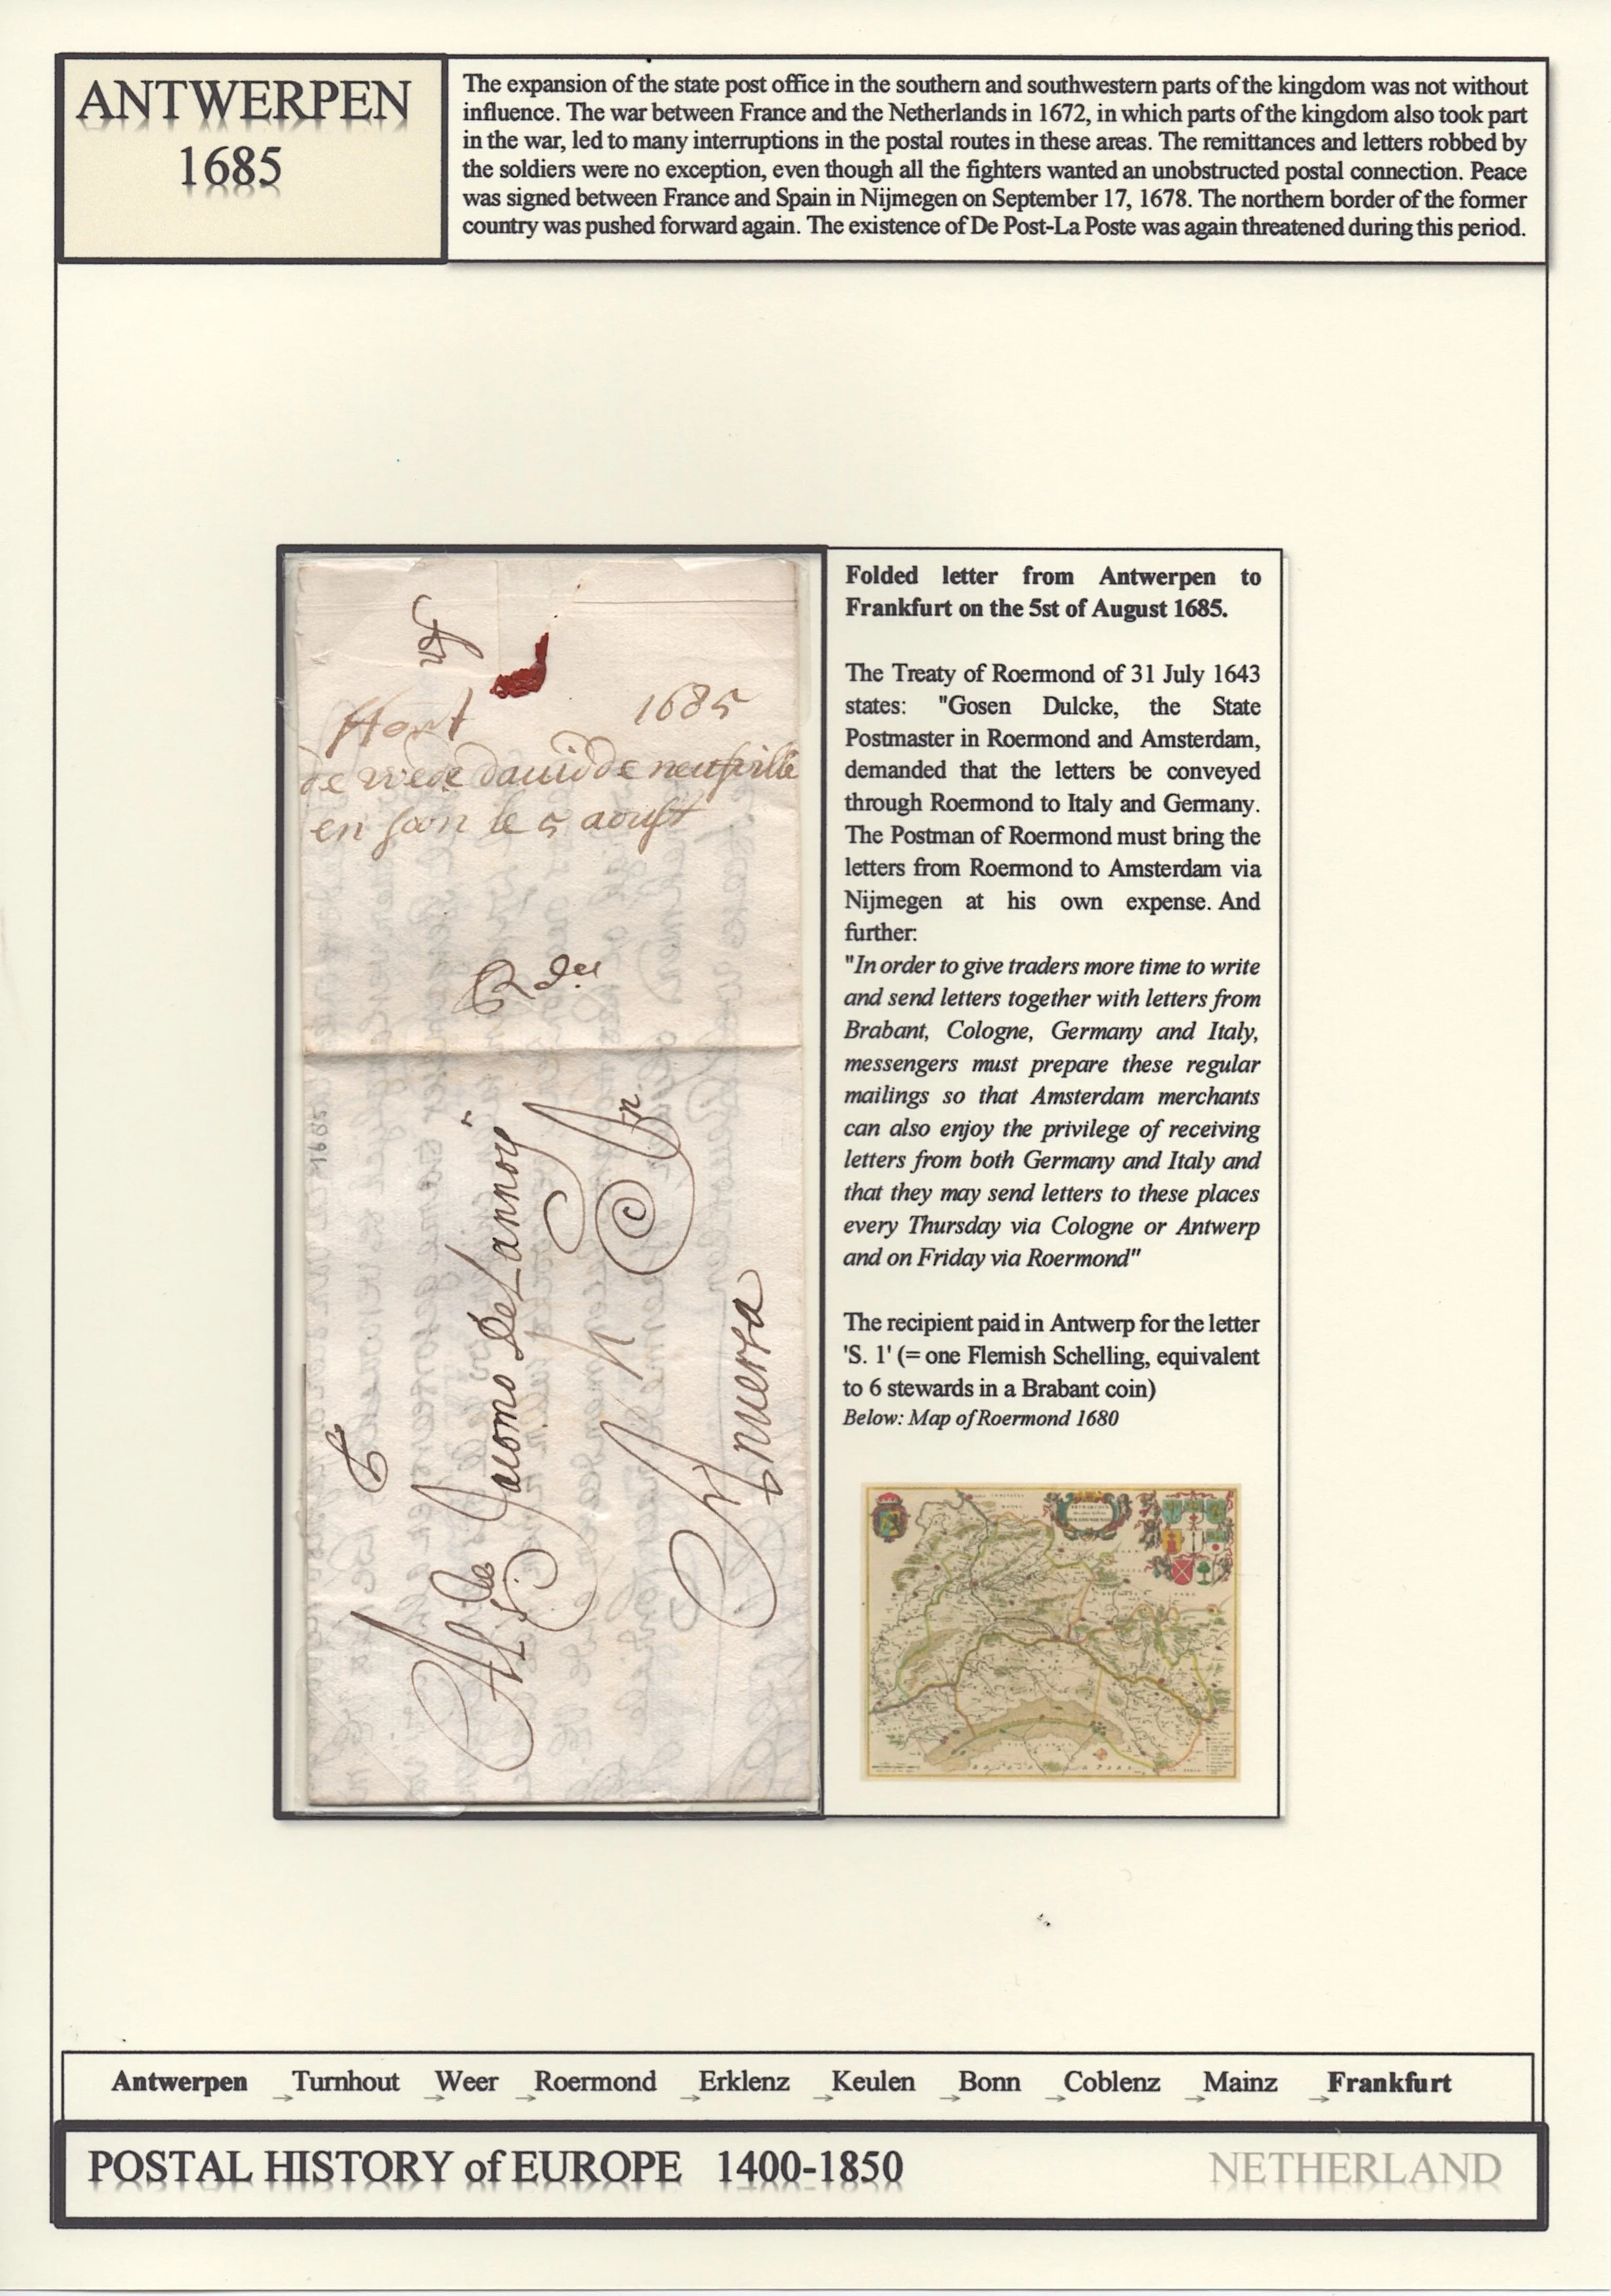 ANTWERPEN
1685
The expansion of the state post office in the southern and southwestern parts of the kingdom was not without
influence. The war between France and the Netherlands in 1672, in which parts of the kingdom also took part
in the war, led to many interruptions in the postal routes in these areas. The remittances and letters robbed by
the soldiers were no exception, even though all the fighters wanted an unobstructed postal connection. Peace
was signed between France and Spain in Nijmegen on September 17, 1678. The northern border of the former
country was pushed forward again. The existence of De Post-La Poste was again threatened during this period.
1685
de wede dauid de neufville
en soon le 5 aoust
Jacomo De Lannoij
Anuersa
1685
Folded letter from Antwerpen to
Frankfurt on the 5st of August 1685.
The Treaty of Roermond of 31 July 1643
states: "Gosen Dulcke, the State
Postmaster in Roermond and Amsterdam,
demanded that the letters be conveyed
through Roermond to Italy and Germany.
The Postman of Roermond must bring the
letters from Roermond to Amsterdam via
Nijmegen at his own expense. And
further:
"In order to give traders more time to write
and send letters together with letters from
Brabant, Cologne, Germany and Italy,
messengers must prepare these regular
mailings so that Amsterdam merchants
can also enjoy the privilege of receiving
letters from both Germany and Italy and
that they may send letters to these places
every Thursday via Cologne or Antwerp
and on Friday via Roermond"
The recipient paid in Antwerp for the letter
'S. 1' (= one Flemish Schelling, equivalent
to 6 stewards in a Brabant coin)
Below: Map of Roermond 1680
Antwerpen → Turnhout → Weer → Roermond → Erklenz → Keulen → Bonn → Coblenz → Mainz → Frankfurt
POSTAL HISTORY of EUROPE 1400-1850
NETHERLAND